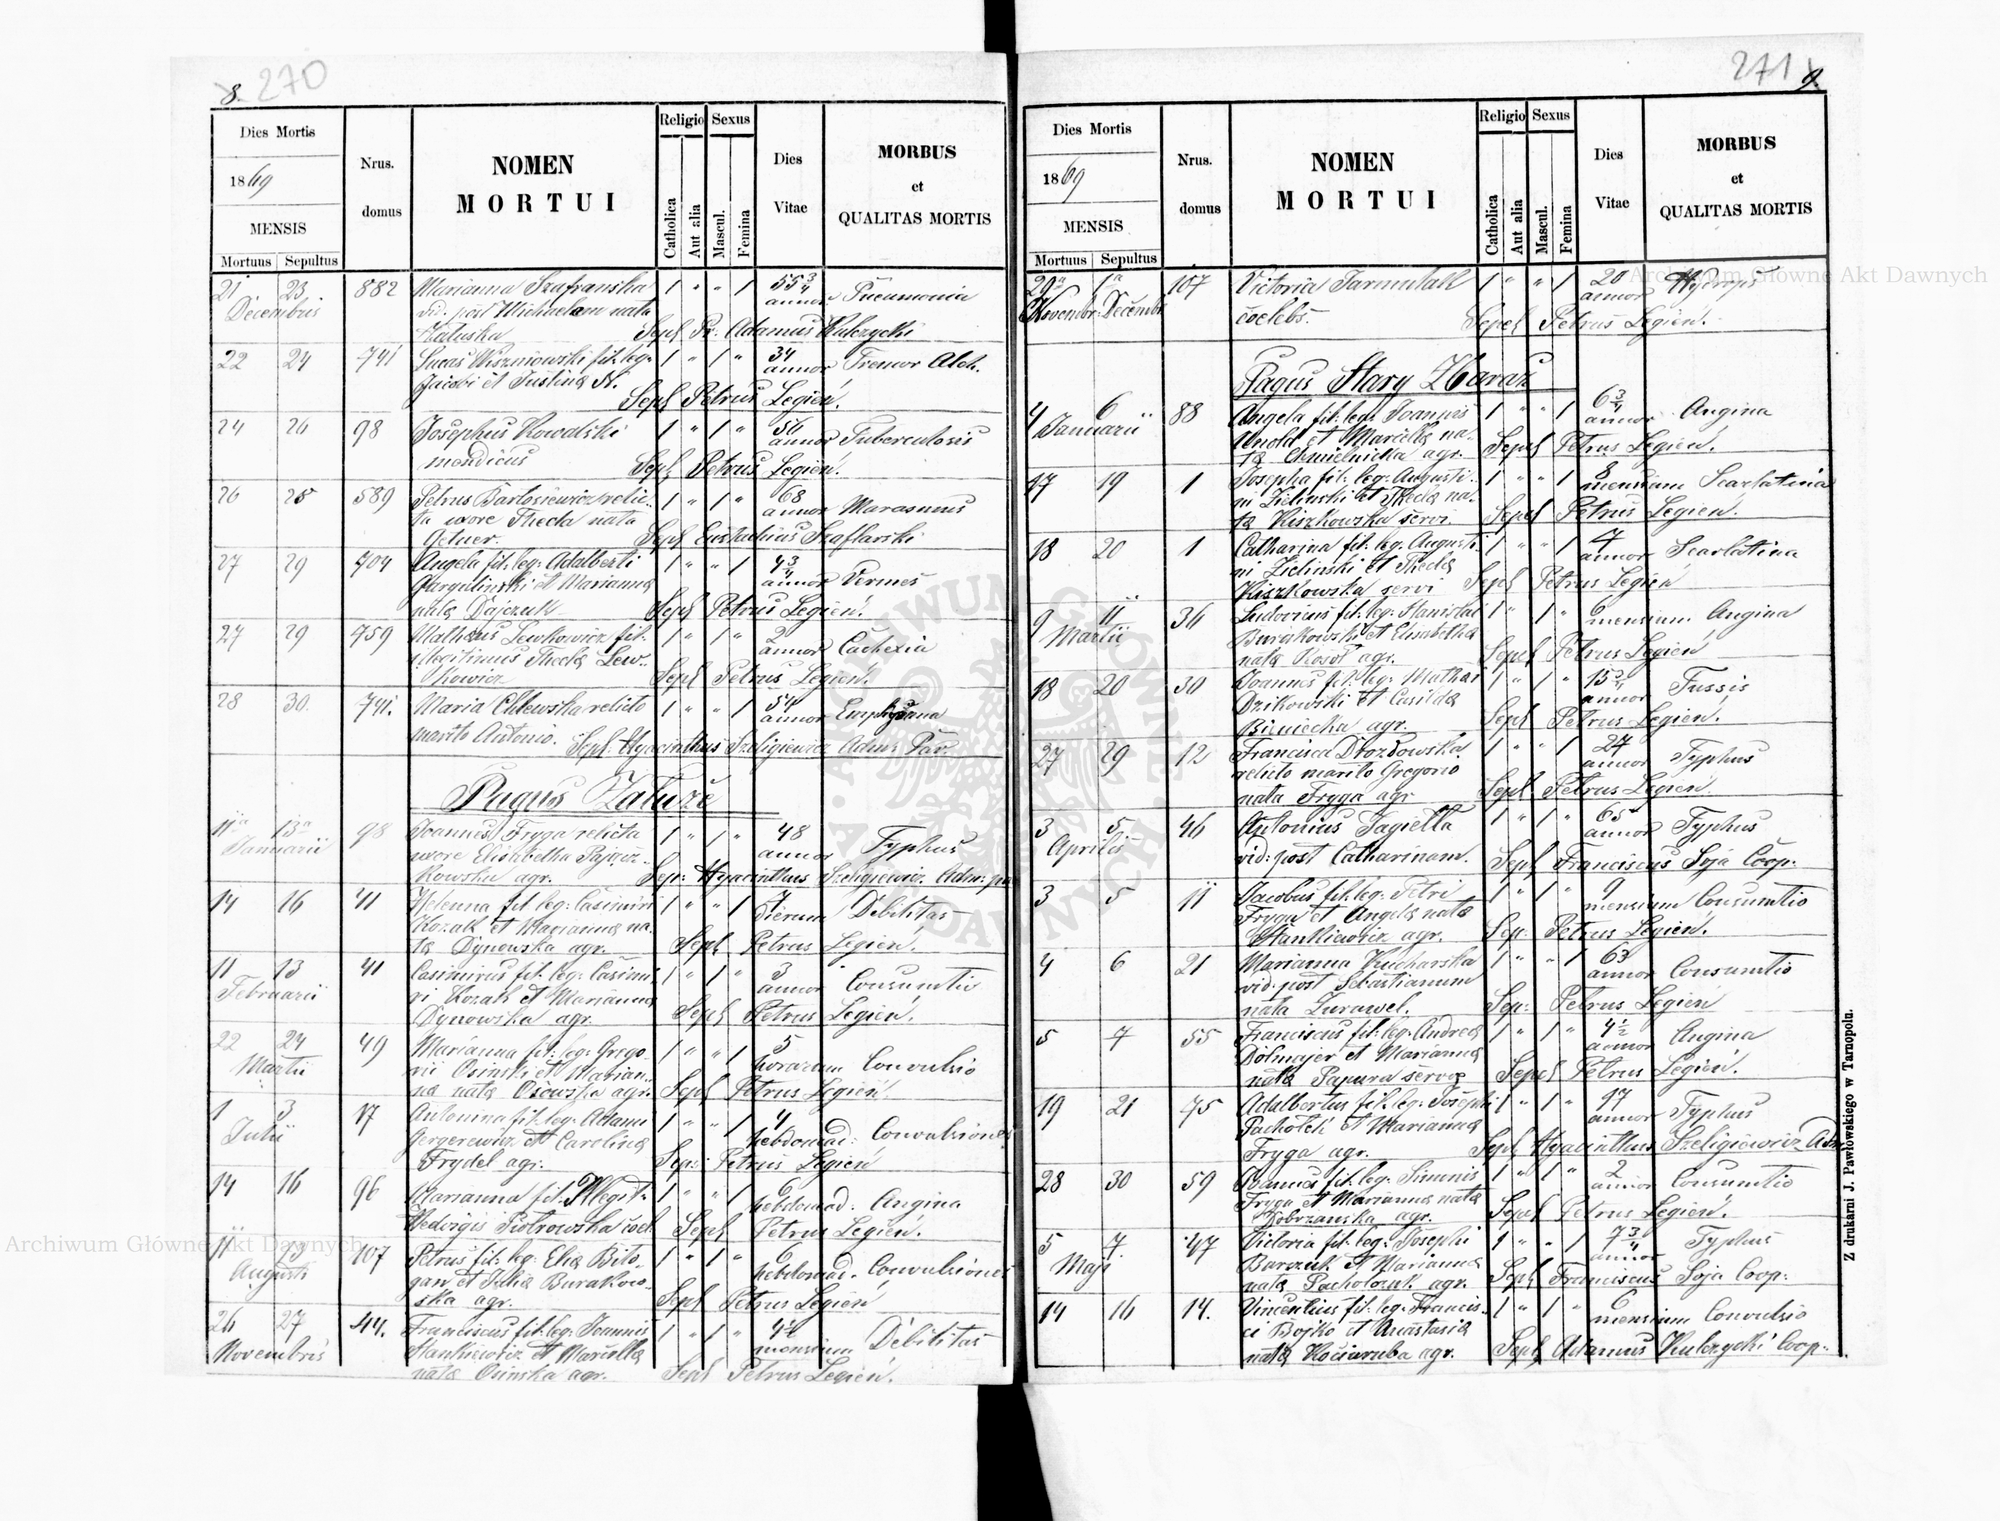 8. 270
Dies Mortis
1869
MENSIS
Mortuus Sepultus
Nrus. domus
NOMEN MORTUI
Religio
Catholica
Aut alia
Sexus
Mascul.
Femina
Dies Vitae
MORBUS et QUALITAS MORTIS
21 23 882 Marianna Szafrańska 1 " " 1 55 3/4 Pneumonia
Decembris vid. post Michaelem nata annor
Sepel. Pr. Adamus Kulczycki
22 24 741 Lucas Wiszniowski fil. leg. 1 " 1 " 34 Tremor Alch.
Jacobi et Justinae N. annor
Sepel Petrus Legień.
24 26 98 Josephus Kowalski 1 " 1 " 56 Tuberculosis
mendicus annor
Sepel Petrus Legień.
26 28 589 Petrus Bartosiewicz relic- 1 " 1 " 68 Marasmus
ta uxore Thecla nata annor
Sepel Eustachius Szaflarski
27 29 704 Angela fil. leg. Adalberti 1 " " 1 4 3/4 Vermes
et Mariannae annor
natae Sepel Petrus Legień.
27 29 759 Mathaeus Lewkowicz fil. 1 " 1 " 2 Cachexia
illegitimus Theclae Lew- annor
kowicz Sepel Petrus Legień.
28 30. 741. Maria Chlewska relicto 1 " " 1 54 Emphysema
marito Antonio. annor
Sepel. Hyacinthus Szeligiewicz Adm. Par.
Pagus Załuże
11a 13a 98 Joannes Fryga relicta 1 " 1 " 48 Typhus
Januarii uxore Elisabetha annor
kowska agr. Sep: Hyacinthus Szeligiewicz Adm: pa
14 16 41 Helenna fil leg: Casimiri 1 " " 1 7 Debilitas
Kozak et Mariannae na- dierum
tae Dynowska agr. Sepel Petrus Legień.
11 13 41 Casimirus fil: leg: Casimi- 1 " 1 " 3 Consumtio
Februarii ri Kozak et Mariannae annor
Dynowska agr. Sepel Petrus Legień.
22 24 49 Marianna fil: leg: Grego- 1 " " 1 5 Convulsio
Martii rii Osinski et Marian- horarum
nae natae agr. Sepel Petrus Legień.
1 3 17 Antonina fil. leg. Adami 1 " " 1 4 Convulsiones
Julii Gergerewicz et Carolinae hebdomad:
Frydel agr. Sep: Petrus Legień
14 16 96 Marianna fil. Illegit. 1 " " 1 6 Angina
Hedvigis Piotrowska coel. hebdomad.
Sepel Petrus Legień.
11 13 107 Petrus fil: leg: Eliae Biło- 1 " 1 " 6 Convulsiones
Augusti gan et Juliae Burakow- hebdomad.
ska agr. Sepel Petrus Legień
26 27 44. Franciscus fil: leg: Joannis 1 " 1 " 4 1/2 Debilitas
Novembris Stankiewicz et Marcellae mensium
natae Osinska agr. Sepel Petrus Legień.
271 9.
Dies Mortis
1869
MENSIS
Mortuus Sepultus
Nrus. domus
NOMEN MORTUI
Religio
Catholica
Aut alia
Sexus
Mascul.
Femina
Dies Vitae
MORBUS et QUALITAS MORTIS
29a 1a 107 Victoria 1 " " 1 20 Hydrops
Novembr. Decembr. coelebs. annor
Sepel Petrus Legień.
Pagus Stary Zbaraż
4 6 88 Angela fil. leg. Joannis 1 " " 1 6 3/4 Angina
Januarii Arnold et Marcellae na- annor
tae Chmielnicka agr. Sepel Petrus Legień.
17 19 1 Josepha fil. leg. Augusti- 1 " " 1 8 Scarlatina
ni Zielinski et Theclae na- mensium
tae Kiszkowska servi Sepel Petrus Legień.
18 20 1 Catharina fil. leg. Augusti- 1 " " 1 7 Scarlatina
ni Zielinski et Theclae annor
Kiszkowska servi Sepel Petrus Legień
9 11 36 Ludovicus fil: leg: Stanislai 1 " 1 " 6 Angina
Martii Burakowski et Elisabethae mensium.
natae agr. Sepel Petrus Legień
18 20 30 Joannes fil. leg. Mathaei 1 " 1 " 15 3/4 Tussis
Dzikowski et Casildae annor
Bieniecka agr. Sepel Petrus Legień.
27 29 12 Francisca Drozdowska 1 " " 1 27 Typhus
relicto marito Gregorio annor
nata Fryga agr Sepel Petrus Legień.
3 5 46 Antonius Jagiełła 1 " 1 " 65 Typhus
Aprilis vid: post Catharinam. annor
Sepel Franciscus Soja Coop.
3 5 11 Jacobus fil: leg: Petri 1 " 1 " 9 Consumtio
Fryga et Angelae natae mensium
Stankiewicz agr. Sep: Petrus Legień.
4 6 21 Marianna Kucharska 1 " " 1 63 Consumtio
vid: post Sebastianum annor
nata Zurawel. Sep: Petrus Legień
5 7 55 Franciscus fil: leg. Andreae 1 " 1 " 4 1/2 Angina
Dolmajer et Mariannae annor
natae Papura servae Sepel Petrus Legień.
19 21 75 Adalbertus fil. leg. Josephi 1 " 1 " 17 Typhus
Pachołek et Mariannae annor
Fryga agr. Sepel Hyacinthus Szeligiewicz Adm
28 30 59 fil. leg. Simonis 1 " 1 " 2 Consumtio
Fryga et Mariannae natae annor
Dobrzanska agr. Sepel Petrus Legień.
5 7 47 Victoria fil. leg. Josephi 1 " " 1 7 3/4 Typhus
Maji et Mariannae annor
natae agr. Sepel Franciscus Soja Coop:
14 16 14. Vincentius fil. leg. Francis- 1 " 1 " 6 Convulsio
ci Bojko et Anastasiae mensium
natae Kociaruba agr. Sepel Adamus Kulczycki Coop.
Z drukarni J. Pawłowskiego w Tarnopolu.
Archiwum Główne Akt Dawnych
Archiwum Główne Akt Dawnych
ARCHIWUM GŁÓWNE AKT DAWNYCH